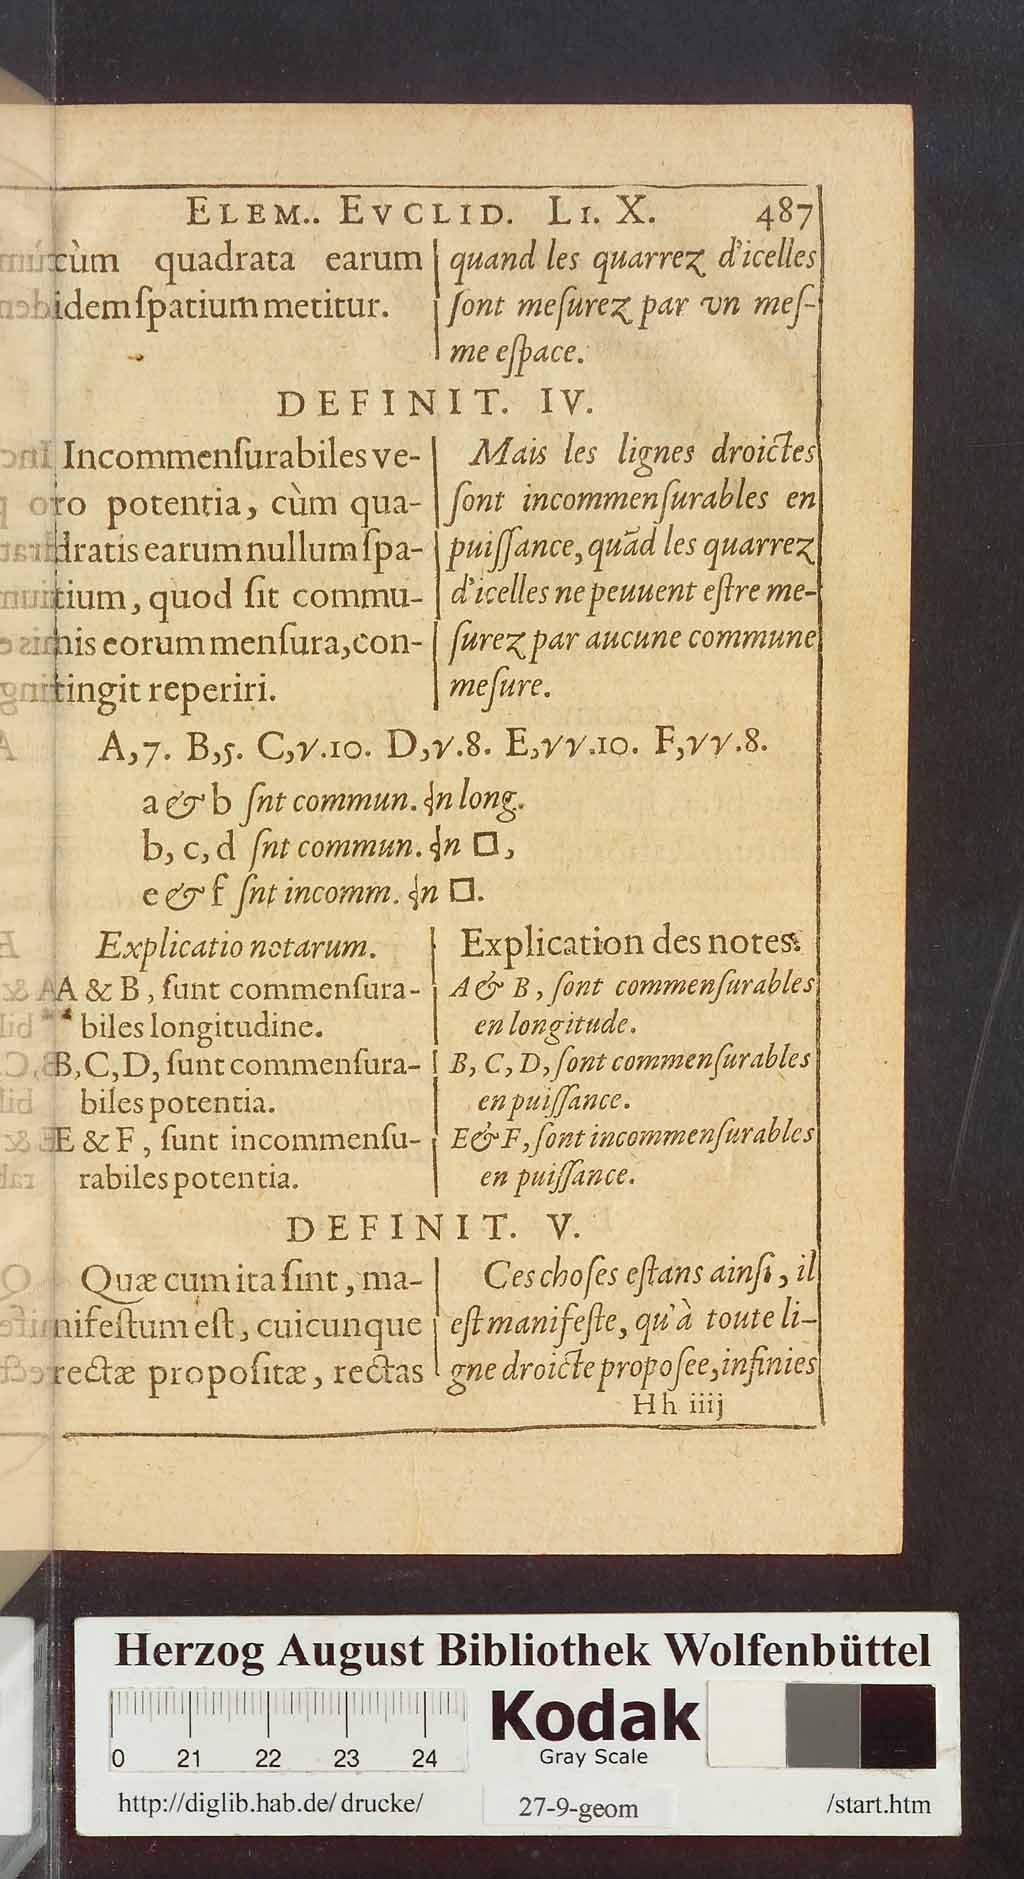 ELEM.. EVCLID. LI. X. 487
cùm quadrata earum
idem ſpatium metitur.
quand les quarrez d'icelles
ſont meſurez par vn meſ-
me eſpace.
DEFINIT. IV.
Incommenſurabiles ve-
ro potentia, cùm qua-
dratis earum nullum ſpa-
tium, quod ſit commu-
nis eorum menſura, con-
tingit reperiri.
Mais les lignes droictes
ſont incommenſurables en
puiſſance, quãd les quarrez
d'icelles ne peuuent eſtre me-
ſurez par aucune commune
meſure.
A,7. B,5. C,√.10. D,√.8. E,√√.10. F,√√.8.
a & b ſnt commun. in long.
b, c, d ſnt commun. in □,
e & f ſnt incomm. in □.
Explicatio notarum.
A & B, ſunt commenſura-
biles longitudine.
B, C, D, ſunt commenſura-
biles potentia.
E & F, ſunt incommenſu-
rabiles potentia.
Explication des notes.
A & B, ſont commenſurables
en longitude.
B, C, D, ſont commenſurables
en puiſſance.
E & F, ſont incommenſurables
en puiſſance.
DEFINIT. V.
Quæ cum ita ſint, ma-
nifeſtum eſt, cuicunque
rectæ propoſitæ, rectas
Ces choſes eſtans ainſi, il
eſt manifeſte, qu'à toute li-
gne droicte propoſee, infinies
Hh iiij
Herzog August Bibliothek Wolfenbüttel
0 21 22 23 24
Kodak
Gray Scale
http://diglib.hab.de/drucke/ 27-9-geom /start.htm